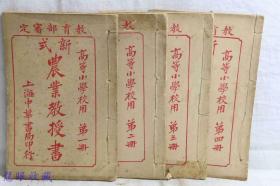 定審部育教
新式
農業教授書
高等小學校用 第一册
上海中華書局印行
教
高等小學校用 第二册
教
高等小學校用 第三册
育教
高等小學校用 第四册